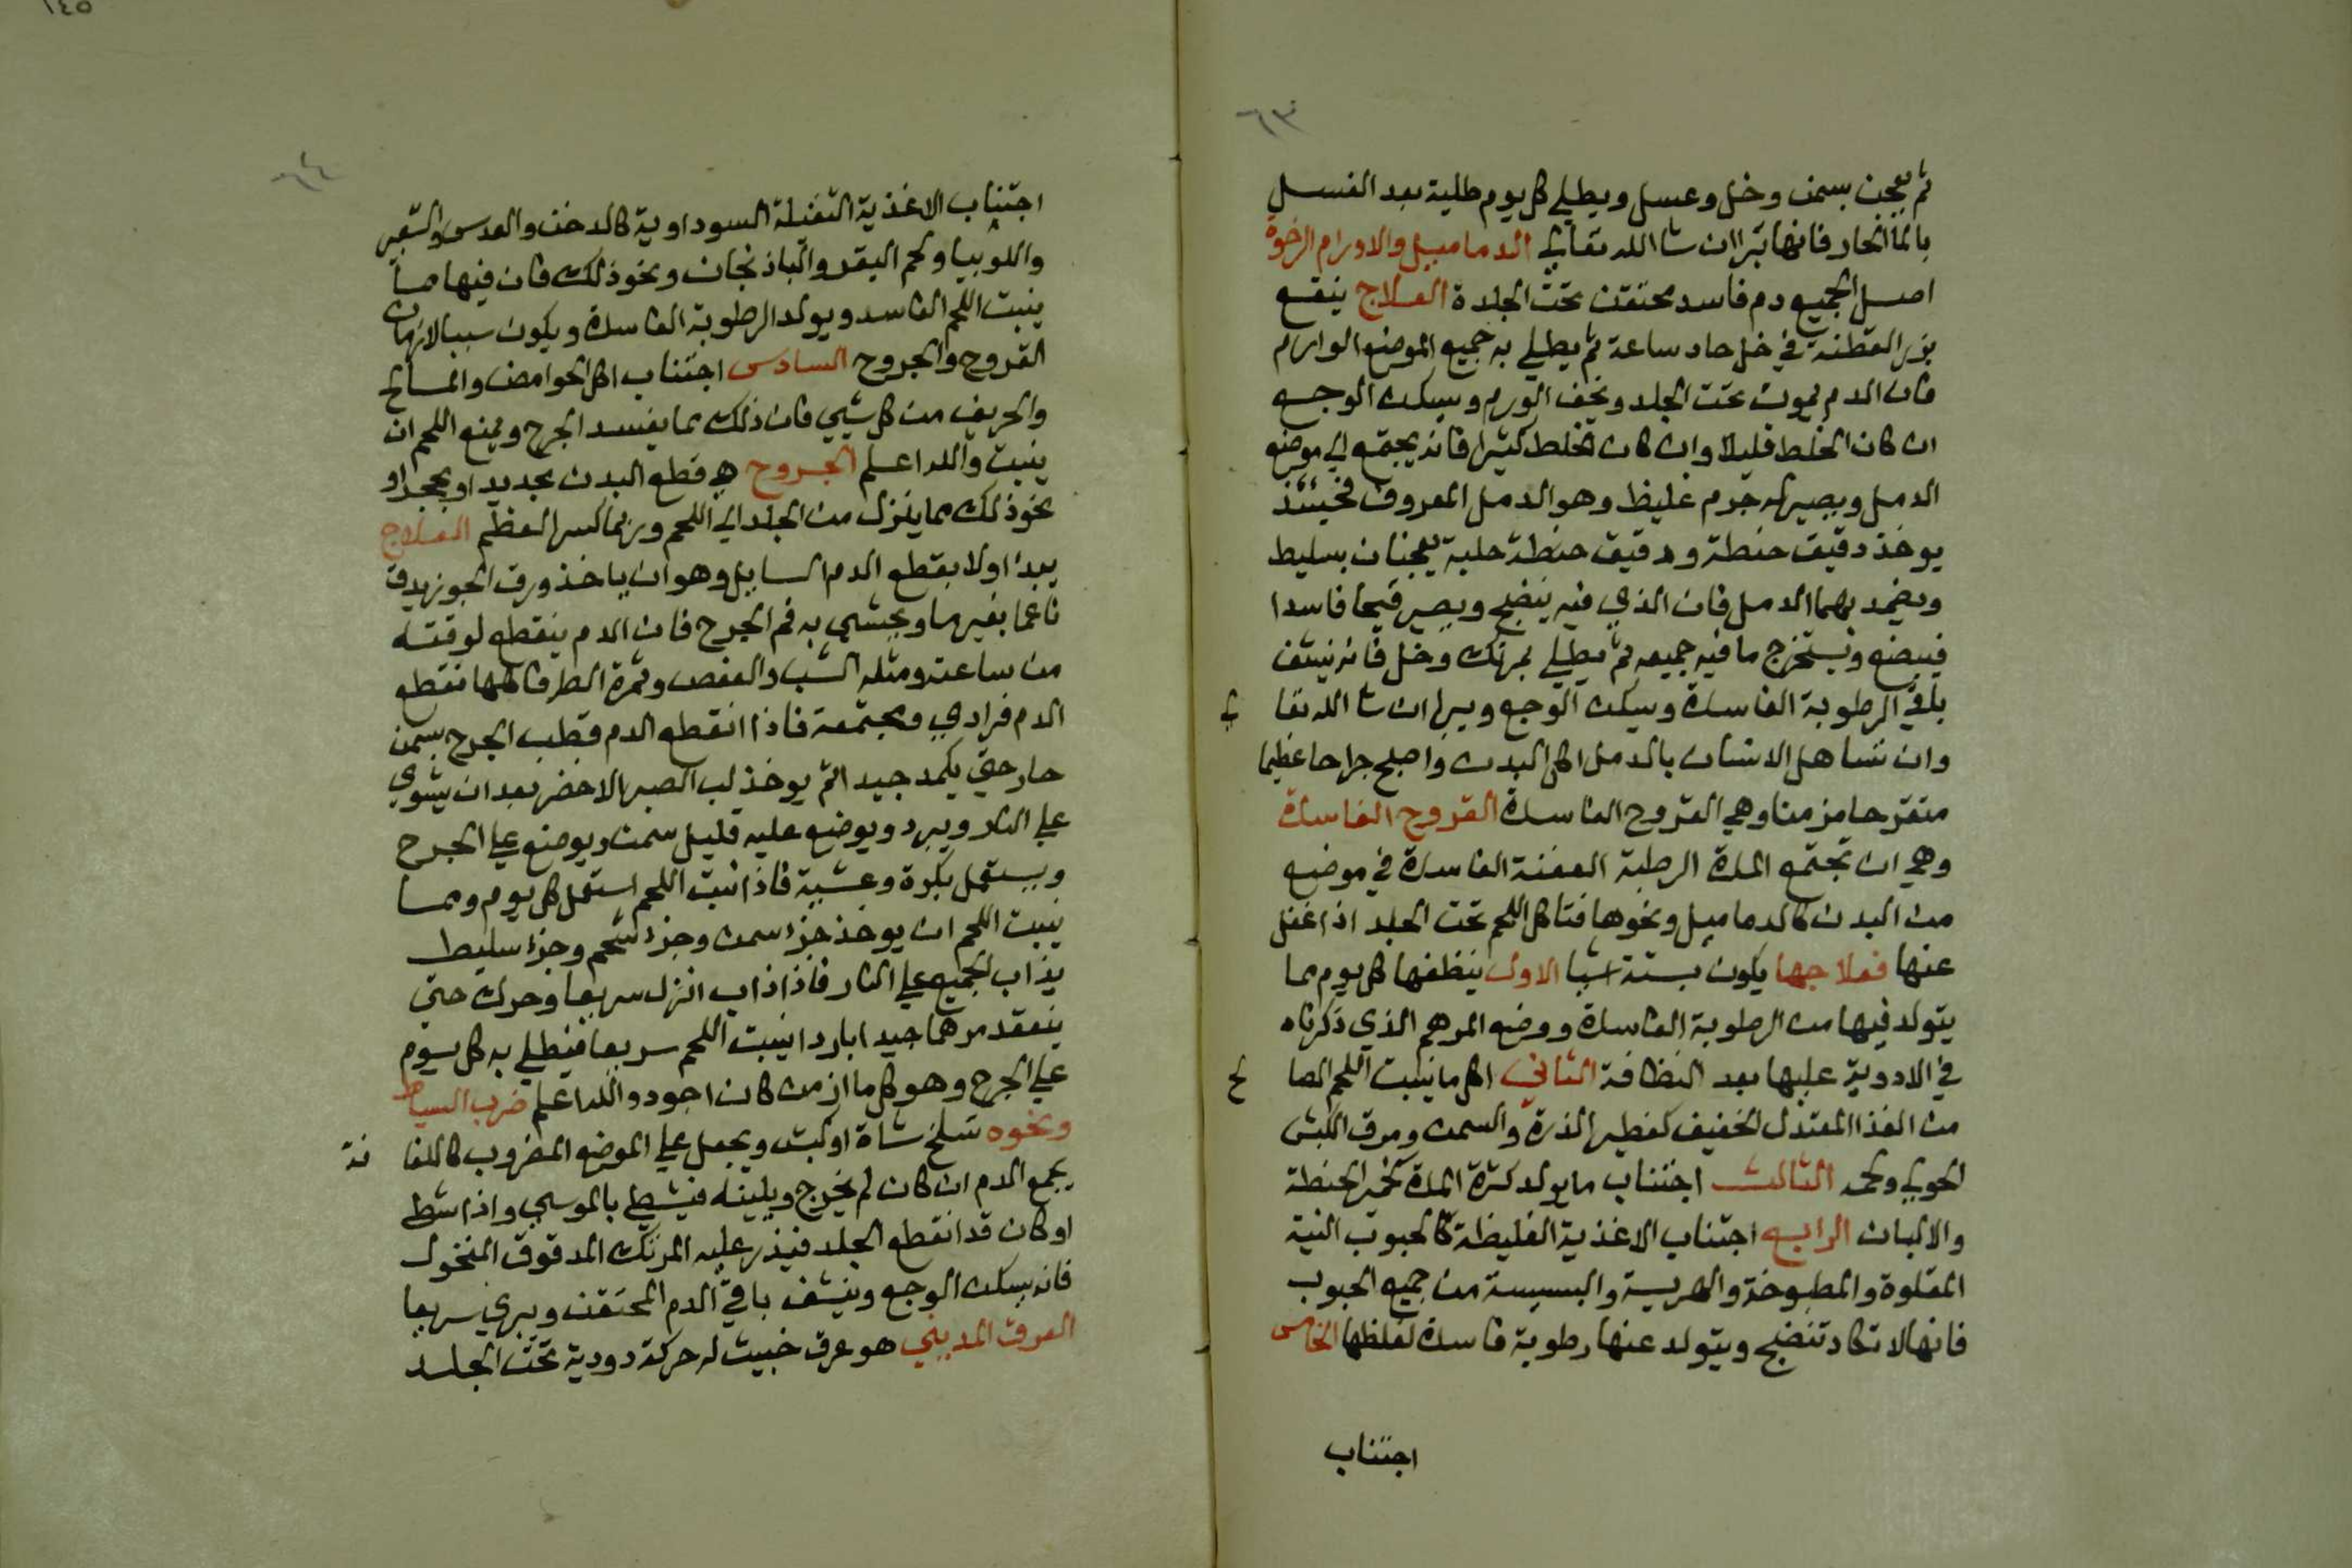 ٦٣
ثم يعجن بسمن وخل وعسل ويطلي كل يوم طلية بعد الغسل
بالما الحار فانها تبرا ان شا الله تعالي الدماميل والاورام الرخوة
اصل الجميع دم فاسد محتقن تحت الجلدة العلاج ينقع
بزر القطنة في خل حاد ساعة ثم يطلي به جميع الموضع الوارم
فان الدم يموت تحت الجلد ويخف الورم ويسكن الوجع
ان كان الخلط قليلا وان كان الخلط كثيرا فانه يجتمع الي موضع
الدمل ويصير له جرم غليظ وهو الدمل المعروف فحينئذ
يوخذ دقيق حنطة ودقيق حلبة يعجنان بسليط
ويضمد بهما الدمل فان الذي فيه ينضج ويصير قيحا فاسدا
فيبضع ويستخرج ما فيه جميعه ثم يطلي بمرتك وخل فانه ينشف
باقي الرطوبة الفاسدة ويسكن الوجع ويبرا ان شا الله تعا لي
وان تساهل الانسان بالدمل اكل البدن واصلح جراحا عظيما
متقرحا مزمنا وهي القروح الفاسدة القروح الفاسدة
وهي ان تجتمع المادة الرطبة العفنة الفاسدة في موضع
من البدن كالدماميل ونحوها فتاكل اللحم تحت الجلد اذا غفل
عنها فعلاجها يكون بستة اشيا الاول ينظفها كل يوم مما
يتولد فيها من الرطوبة الفاسدة ووضع المرهم الذي ذكرناه
في الادوية عليها بعد النظافة الثاني اكل ما ينبت اللحم الصا لح
من الغذا المعتدل الخفيف كفطير الذرة والسمن ومرق الكبش
الحولي ولحمه الثالث اجتناب ما يولد كثرة المادة كخمير الحنطة
والالبان الرابع اجتناب الاغذية الغليظة كالحبوب النية
المقلوة والمطبوخة والهريسة والبسيسة من جميع الحبوب
فانها لا تكاد تنضج ويتولد عنها رطوبة فاسدة لغلظها الخامس
اجتناب
١٤٥
٦٤
اجتناب الاغذية الثقيلة السوداوية كالدخن والعدس والشعير
واللوبيا ولحم البقر والباذنجان ونحو ذلك فان فيها ما
ينبت اللحم الفاسد ويولد الرطوبة الفاسدة ويكون سببا لازمان
القروح والجروح السادس اجتناب اكل الحوامض والمالح
والحريف من كل شي فان ذلك مما يفسد الجرح ويمنع اللحم ان
ينبت والله اعلم الجروح هي قطع البدن بحديد او بحجر او
نحو ذلك مما ينزل من الجلد الي اللحم وربما كسر العظم العلاج
يبدا اولا بقطع الدم السايل وهو ان ياخذ ورق الجوز يدق
ناعما بغير ما ويحشي به فم الجرح فان الدم ينقطع لوقته
من ساعته ومثله الشب والعفص وثمرة الطرفا كلها تقطع
الدم فرادي ومجتمعة فاذا انقطع الدم قطب الجرح بسمن
حار حتي يكمد جيدا ثم يوخذ لب الصبر الاخضر بعد ان يشوي
علي النار ويبرد ويوضع عليه قليل سمن ويوضع علي الجرح
ويستعمل بكرة وعشية فاذا نبت اللحم استعمل كل يوم ومما
ينبت اللحم ان يوخذ جزء سمن وجزء شحم وجزء سليط
يذاب الجميع علي النار فاذا ذاب انزل سريعا وحرك حتي
ينعقد مرهما جيدا باردا ينبت اللحم سريعا فيطلي به كل يوم
علي الجرح وهو كل ما ازمن كان اجود والله اعلم ضرب السياط
ونحوه تسلخ شاة او كبش ويجعل علي الموضع المضروب كاللفا فة
يجمع الدم ان كان لم يخرج ويلينه فيشطي بالموسي واذا شطي
او كان قد انقطع الجلد فيذر عليه المرتك المدقوق المنخول
فانه يسكن الوجع وينشف باقي الدم المحتقن ويبري سريعا
العرق المديني هو عرق خبيث له حركة دودية تحت الجلد